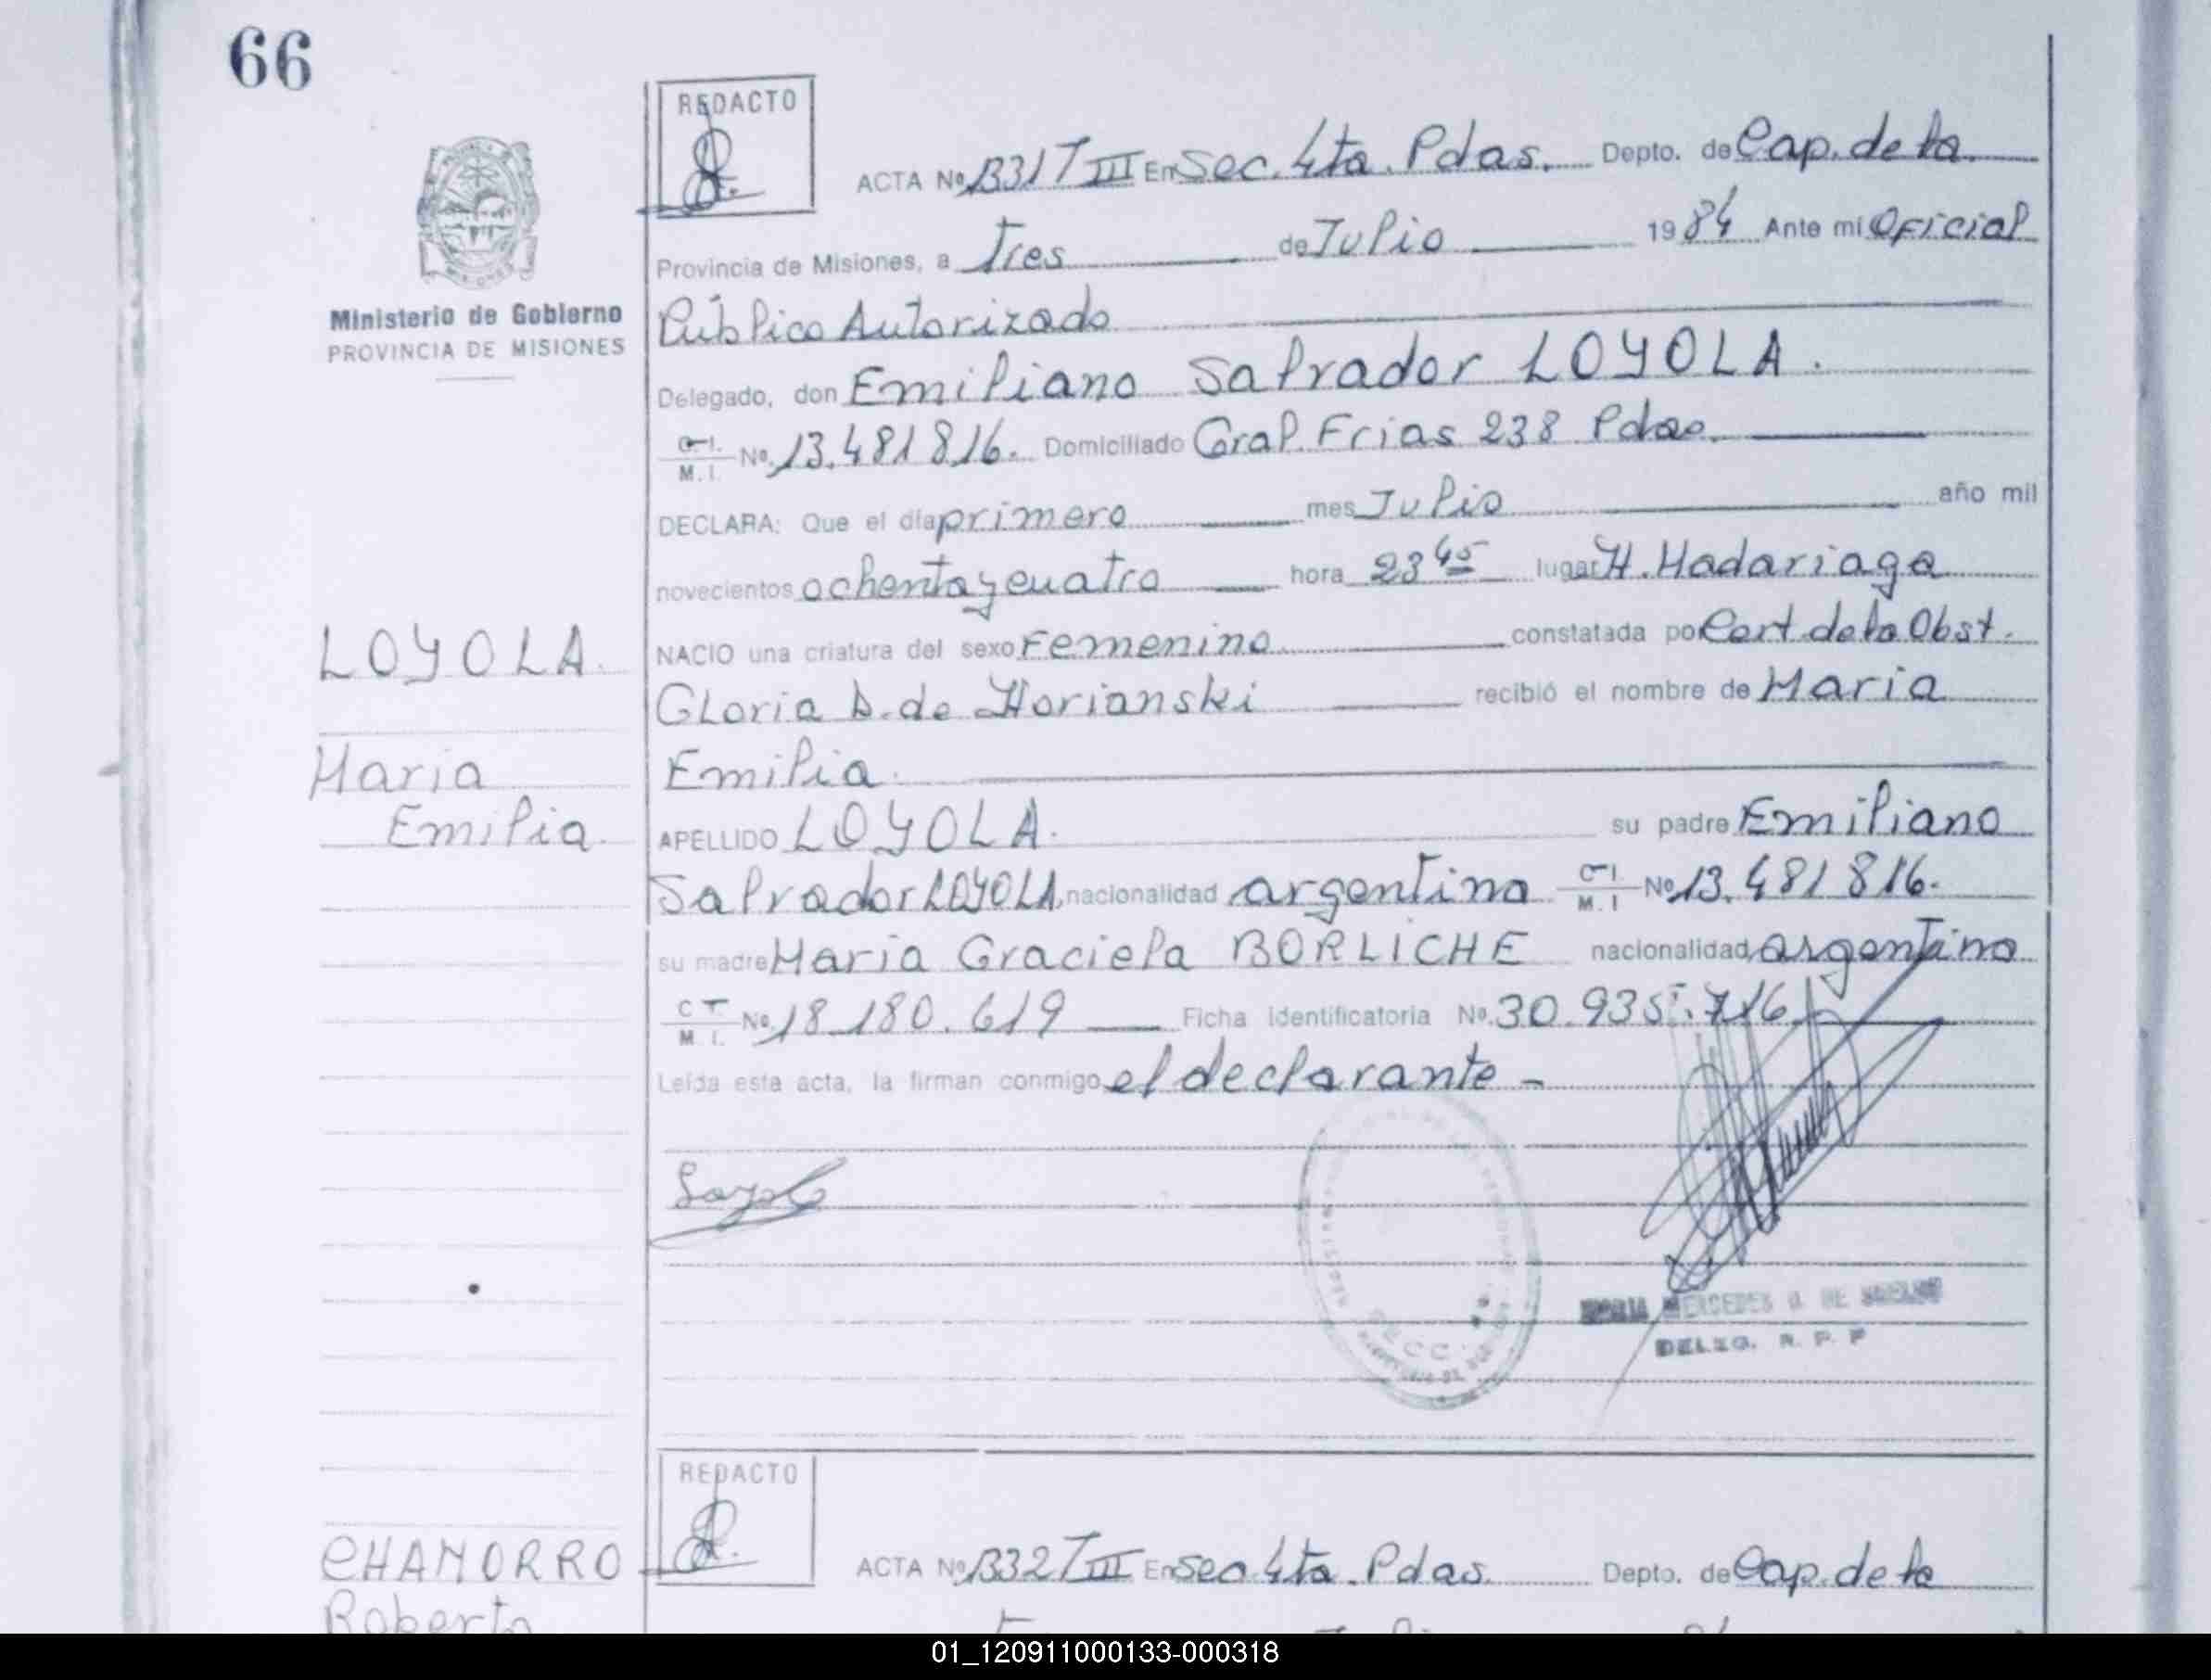 66
REDACTO
ACTA Nº 1331 T III En Sec. 4ta. Pdas. Depto. de Cap. de la
Provincia de Misiones, a Tres de Julio 1984 Ante mi Oficial
Ministerio de Gobierno
PROVINCIA DE MISIONES
Público Autorizado
Delegado, don Emiliano Salvador LOYOLA.
C.I. M.I. Nº 13.481816. Domiciliado Gral. Frias 238 Pdas.
DECLARA: Que el día primero mes Julio año mil
novecientos ochenta y cuatro hora 23 45 lugar H. Madariaga
LOYOLA.
NACIO una criatura del sexo Femenino constatada por Cert. de la Obst.
Gloria D. de Horianski recibió el nombre de Maria
Maria
Emilia.
Emilia.
APELLIDO LOYOLA. su padre Emiliano
Salvador LOYOLA, nacionalidad argentina C.I. M.I Nº 13.481816.
su madre Maria Graciela BORLICHE nacionalidad argentina
C.I. M.I. Nº 18.180.619 Ficha identificatoria Nº 30.935.716
Leída esta acta, la firman conmigo el declarante -
Loyola
MARIA MERCEDES DE
DELEG. R. P. P
REDACTO
CHAMORRO
ACTA Nº 1332 T III En Sec 4ta. Pdas. Depto. de Cap. de la
Roberto
01_120911000133-000318